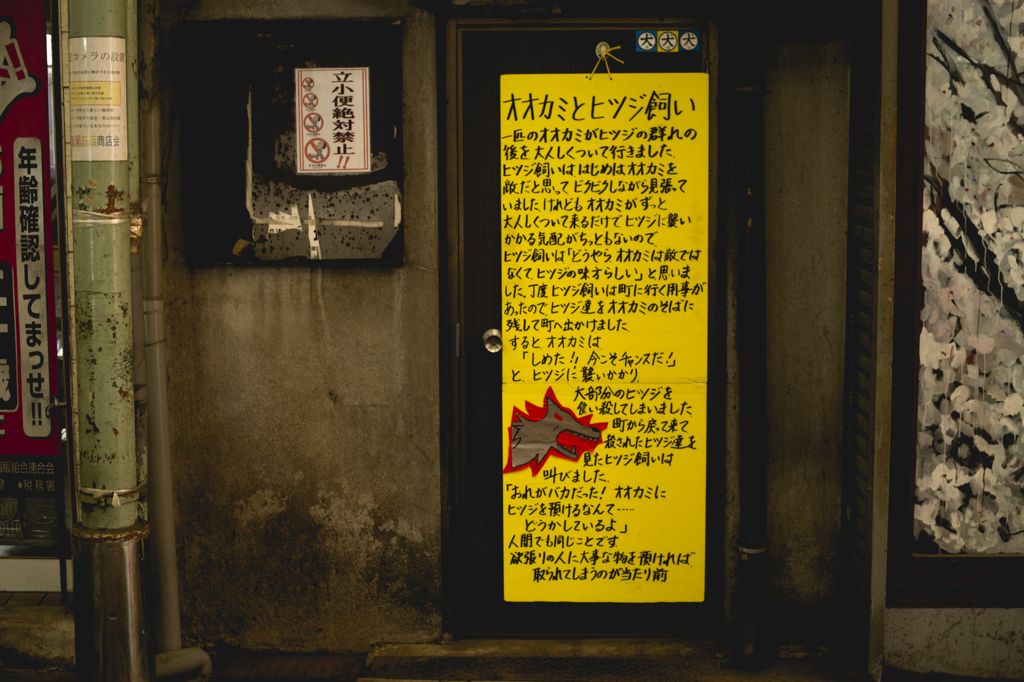 カメラの設置
商店会
年齢確認してまっせ!!
販組合連合会
●税務署
立小便絶対禁止!!
大大大
オオカミとヒツジ飼い
一匹のオオカミがヒツジの群れの
後を大人しくついて行きました
ヒツジ飼いははじめはオオカミを
敵だと思ってビクビクしながら見張って
いましたけれどもオオカミがずっと
大人しくついて来るだけでヒツジに襲い
かかる気配がちっともないので、
ヒツジ飼いは「どうやらオオカミは敵では
なくてヒツジの味方らしい」と思いま
した、丁度ヒツジ飼いは町に行く用事が
あったので、ヒツジ達をオオカミのそばに
残して町へ出かけました
するとオオカミは
「しめた!!今こそチャンスだ!」
と、ヒツジに襲いかかり
大部分のヒツジを
食い殺してしまいました
町から戻って来て
殺されたヒツジ達を
見たヒツジ飼いは
叫びました
「おれがバカだった!オオカミに
ヒツジを預けるなんて……
どうかしているよ」
人間でも同じことです
欲張りの人に大事な物を預ければ
取られてしまうのが当たり前